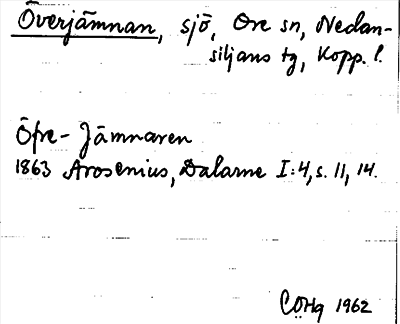 Överjämnan, sjö, Ore sn, Nedan-
siljans tg, Kopp. l.
Öfre-Jämnaren
1863 Arosenius, Dalarne I:4, s. 11, 14.
CÖHg 1962